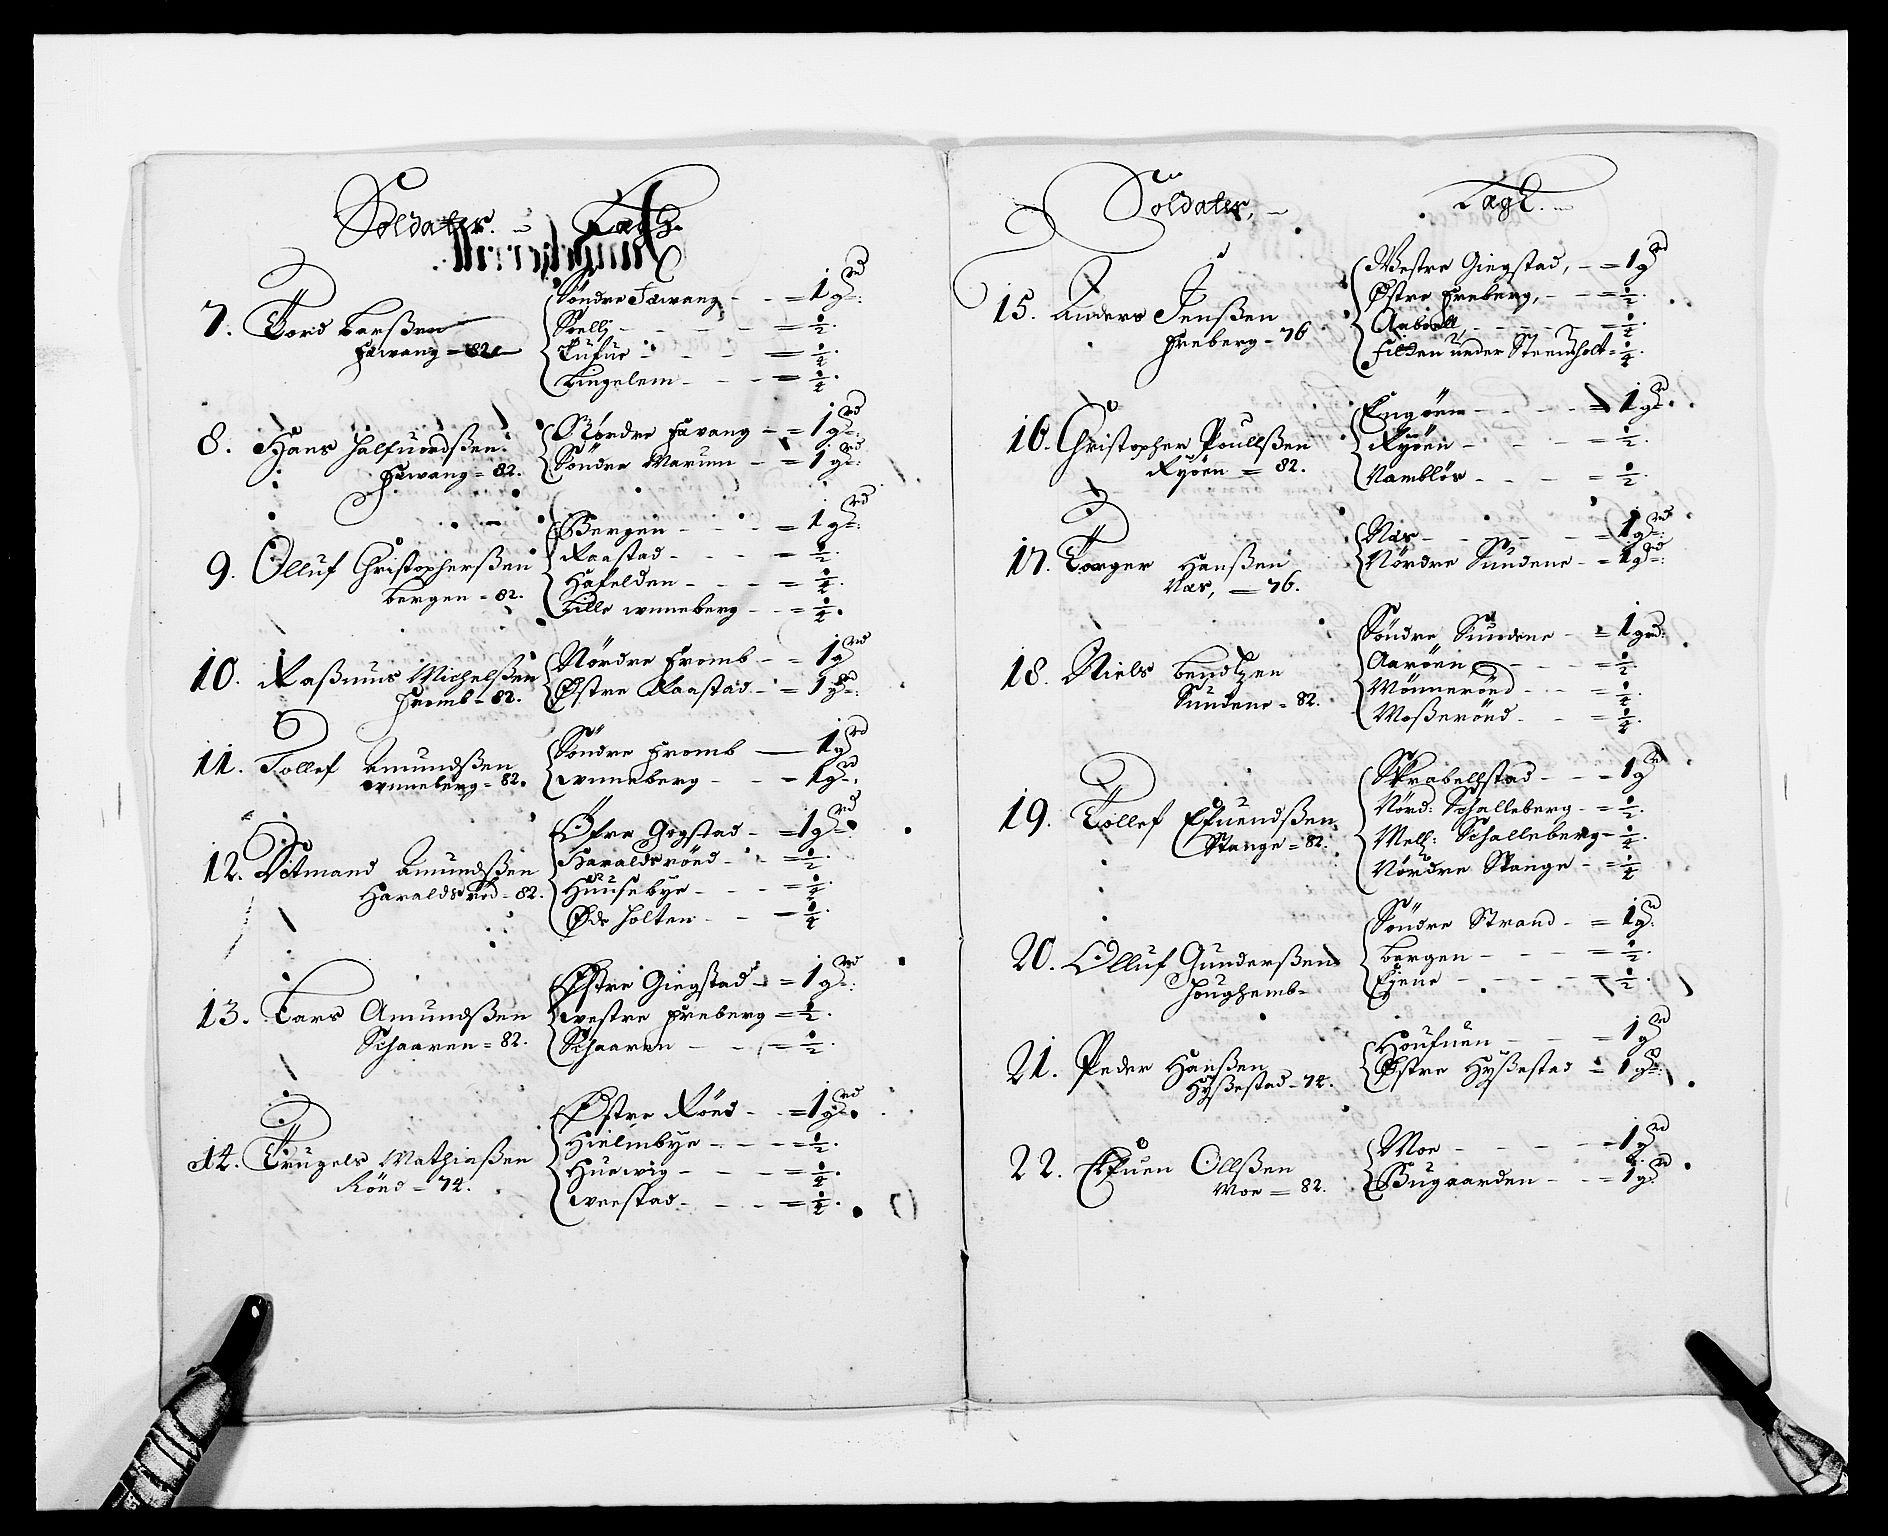 Soldater. Lægh.
7. Tord Larßen
Fævang = 82
Söndre Fævang - - = 1 grd:
Soelli - - - = 1/2.
Tufue - - - = 1/4.
Lingelem - - - = 1/4.
8. Hans Halfuordsßen.
Fævang = 82.
Nordre Fævang - = 1 grd:
Söndre Marum - = 1 grd:
9. Olluf Christophersßen
Bergen = 82.
Bergen - - - = 1 grd:
Raastad - - - = 1/2.
Hafelden - - - = 1/4.
Lille wnneberg - - = 1/4.
10. Raßmus Michelsßen
Fromb = 82.
Nördre Fromb - = 1 grd
Østre Raastad - = 1 grd:
11. Tollef Amundsßen
wnneberg = 82.
Söndre Fromb — 1 grd
wnneberg - - = 1 grd:
12. Ditmand Amundsßen
Haraldsröd = 82.
Öfre Gogstad - = 1 grd:
Haraldsröed - = 1/2.
Huusebye - - = 1/4.
Øde Holten - - = 1/4.
13. Lars Amundsßen
Schaaren = 82.
Østre Giegstad - = 1 grd:
westre Freberg = 1/2.
Schaaren - - = 1/2.
14. Trugels Mathiaßen
Röed = 74.
Østre Röed - - = 1 grd:
Hielmbye - - - = 1/2.
Huewig - - - = 1/4.
weestad - - - = 1/4.
Soldater, Lægh.
15. Anders Jensßen
Freberg = 76
Westre Giegstad, - = 1 grd
Østre Freberg, - = 1/2.
- - - = 1/4.
Fieden under Steensholt = 1/4.
16. Christopher Poullsßen
Ryöen = 82.
Engöem - - - = 1 grd:
Ryöen - - - = 1/2.
Namblös - - - = 1/2.
17. Torger Hansßen
Næs, = 76.
Næs - - - = 1 grd:
Nördre Sundene - = 1 grd:
18. Niels Bendtzen
Sundene = 82.
Söndre Sundene - = 1 grd:
Aaröen - - - = 1/2.
Wönneröed - - = 1/4.
Moßeröed - - = 1/4.
19. Tollef Efuendsßen
Stange = 82.
Skrabellstad - - = 1 grd
Nörd: Schalleberg - = 1/2.
Mell: Schalleberg = 1/4.
Nördre Stange - = 1/4
20. Olluf Gundersßen
Houghemb =
Söndre Strand - = 1 grd:
Bergen - - - = 1/2.
Eiene - - - = 1/2.
21. Peder Hansßen
Hyßestad = 74.
Houfuen - - - = 1 grd
Østre Hyßestad = 1 grd:
22. Efuen Ollsßen
Moe = 82.
Moe - - - = 1 grd
Bugaarden - - = 1 grd